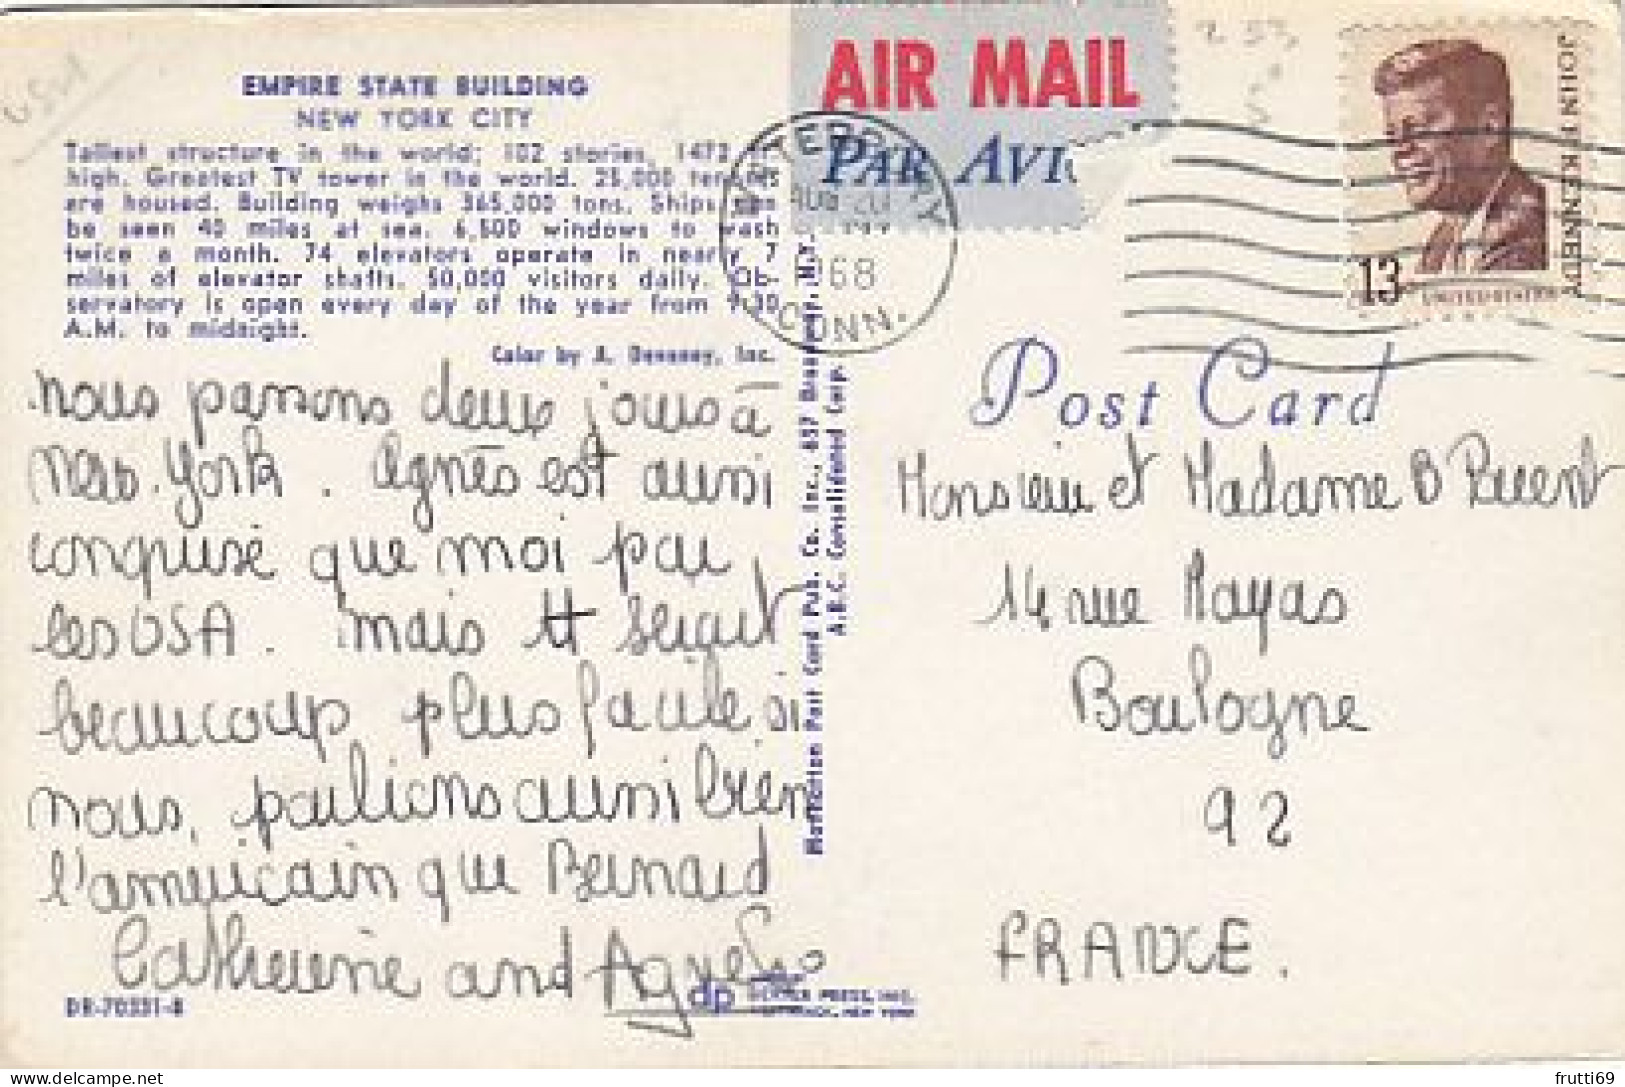 USA
EMPIRE STATE BUILDING
NEW YORK CITY
Tallest structure in the world; 102 stories, 1472
high. Greatest TV tower in the world. 25,000 tenants
are housed. Building weighs 365,000 tons. Ships can
be seen 40 miles at sea. 6,500 windows to wash
twice a month. 74 elevators operate in nearly 7
miles of elevator shafts. 50,000 visitors daily. Ob-
servatory is open every day of the year from 9:30
A.M. to midnight.
Color by A. Devaney, Inc.
nous passons deux jours à
New-York. Agnès est aussi
conquise que moi par
les USA. mais tt serait
beaucoup plus facile si
nous, parlions aussi bien
l'américain que Bernard
Catherine and Agnès
DR-70331-B
dp
DEXTER PRESS, INC.
NEW YORK
Manhattan Post Card Pub. Co. Inc., 657 Broadway, N.Y.
A.B.C. Consolidated Corp.
AIR MAIL
PAR AVI
AUG 20
68
CONN.
JOHN F. KENNEDY
13
UNITED STATES
Post Card
Monsieur et Madame B Parent
14 rue Mayas
Boulogne
92
FRANCE.
frutti69